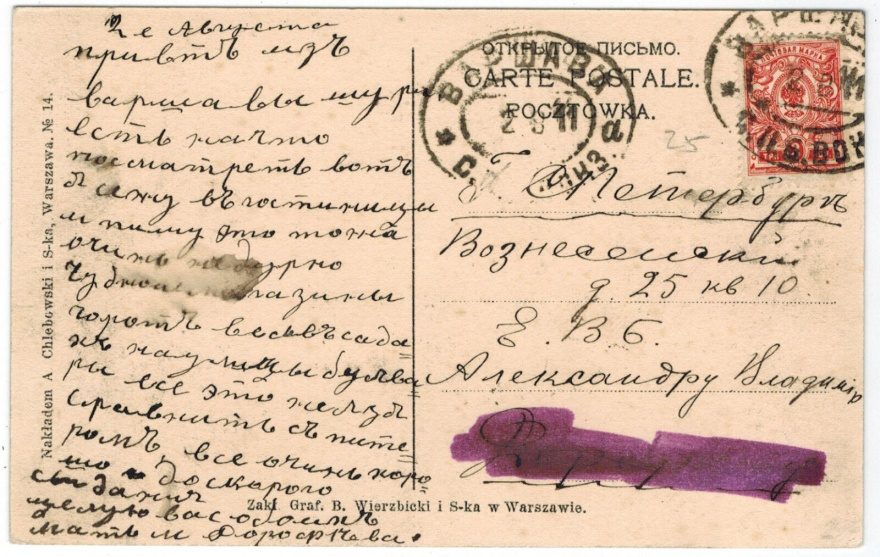 2е Августа
привтъ изъ
варшавы шуры
есть начто
посматреть вотъ
я сижу въ гостиницы
и пишу это тожа
очинь недурно
чудной магазины
горотъ весь въ сада=
хъ на улицы бульва=
ры все это нельзя
сравнить с пите=
ромъ, все очинь хоро
шо доскараго
сьвиданич
целую вас обоимъ
мать М Дорофеева.
Nakładem A Chlebowski i S-ka, Warszawa. № 14.
ОТКРЫТОЕ ПИСЬМО.
CARTE POSTALE.
POCZTÓWKA.
ВАРШАВА
2 8 11
ПОЧТОВАЯ МАРКА
25
Г. Петербургъ
Вознесенский
д. 25 кв 10.
Е. В Б.
Александру Владимір
Zakł. Graf. B. Wierzbicki i S-ka w Warszawie.